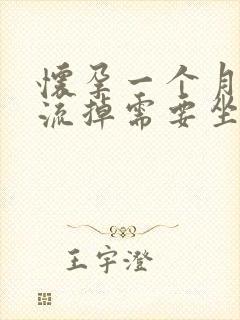 懷孕一个月
流掉需要坐
王宇澄